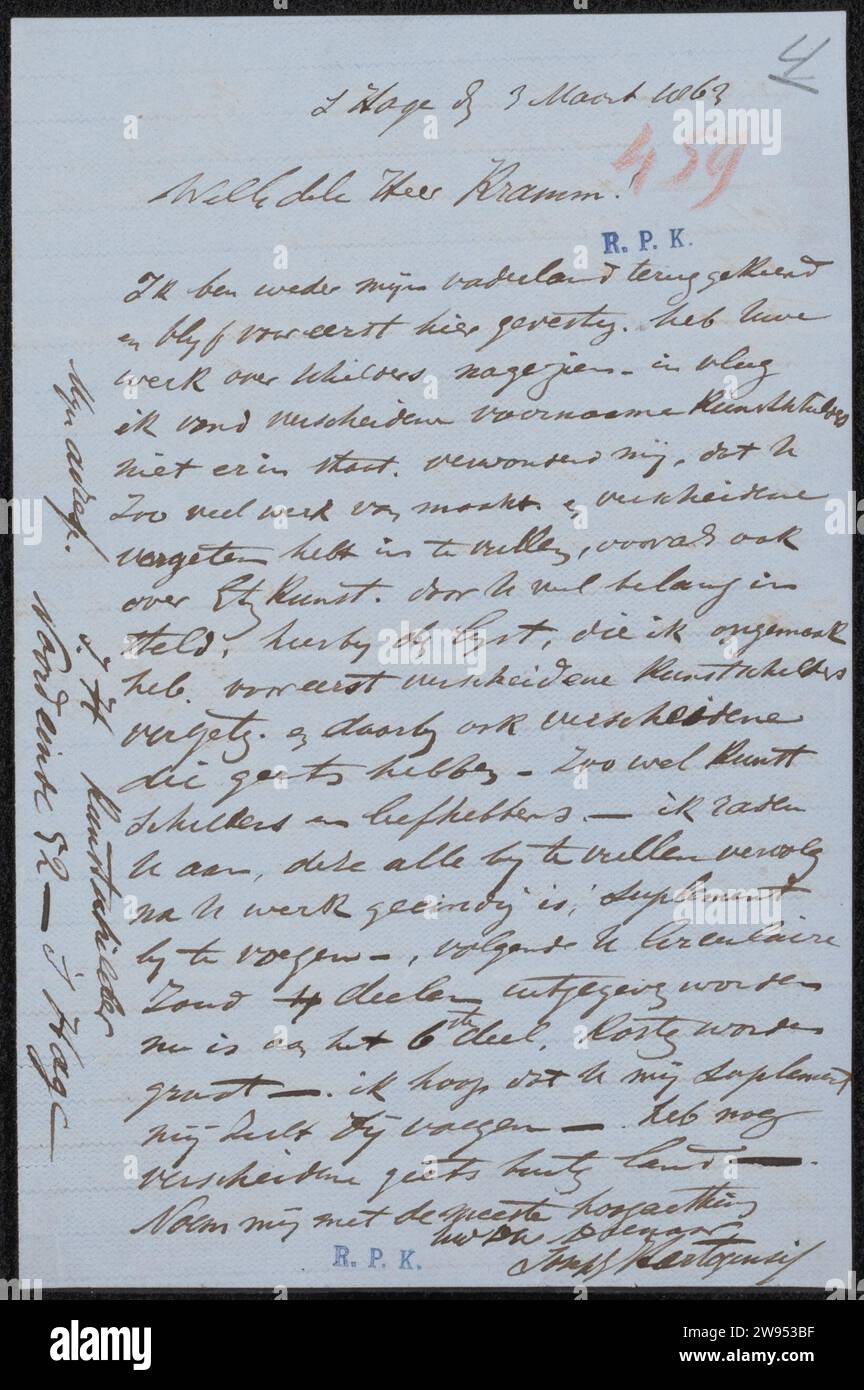 4
S Hage d 3 Maart 1863
459
WelEdele Heer Kramm!
R. P. K.
Ik ben weder mijn vaderland teruggekeerd
en blyf voor eerst hier gevestig. heb Uwe
werk over schilders nagezien - in vlug
ik vond verscheidene voornaame Kunstschilders
niet er in staat. verwonderd mij, dat U
Zoo veel werk van maakt en verscheidene
vergeten hebt in te vullen, vooral ook
over Etz Kunst. door U veel belang in
steld, hierby de lyst, die ik opgemaak
heb. voor eerst verscheidene Kunstschilders
vergetz. en daarby ook verscheidene
die geëts hebben - Zoo wel Kunst
schilders en liefhebbers. — ik raden
U aan, deze alle by te vullen vervolg
na U werk geeindig is, suplement
by te voegen -, volgende U Circulaire
Zoud 4 deelen uitgegeven worden
nu is aan het 6de deel, Kosten worden
groot —. ik hoop dat U mij suplement
mij zult bij voegen —. heb nog
verscheidene geëts buiten land —.
Noem mij met de meeste hoogachting
Uw Dw Dienaar
Joseph Hartogensis
R. P. K.
Myn adres.
J. H Kunstschilder
Noordeinde 52 — S Hage
alamy
Image ID: 2W953BF
www.alamy.com